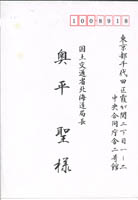 1008918
東京都千代田区霞が関二丁目一-三
中央合同庁舎二号館
国土交通省北海道局長
奥平 聖 様